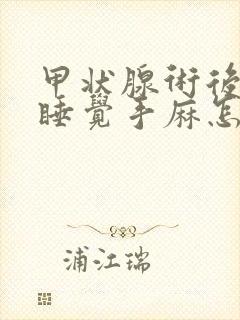 甲状腺術後
睡覺手麻怎
浦江瑞